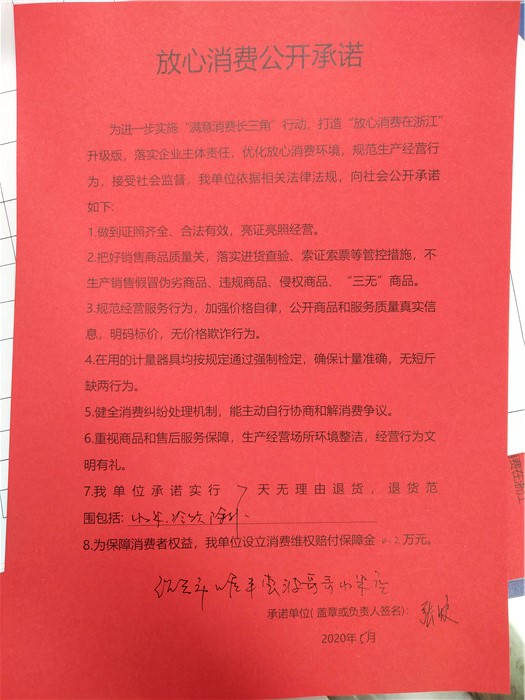 放心消费公开承诺
为进一步实施“满意消费长三角”行动，打造“放心消费在浙江”
升级版，落实企业主体责任，优化放心消费环境，规范生产经营行
为，接受社会监督，我单位依据相关法律法规，向社会公开承诺
如下：
1.做到证照齐全、合法有效，亮证亮照经营。
2.把好销售商品质量关，落实进货查验、索证索票等管控措施，不
生产销售假冒伪劣商品、违规商品、侵权商品、“三无”商品。
3.规范经营服务行为，加强价格自律，公开商品和服务质量真实信
息，明码标价，无价格欺诈行为。
4.在用的计量器具均按规定通过强制检定，确保计量准确，无短斤
缺两行为。
5.健全消费纠纷处理机制，能主动自行协商和解消费争议。
6.重视商品和售后服务保障，生产经营场所环境整洁，经营行为文
明有礼。
7.我单位承诺实行7天无理由退货，退货范
围包括：水果
8.为保障消费者权益，我单位设立消费维权赔付保障金0.2万元。
承诺单位(盖章或负责人签名)：张
2020年5月